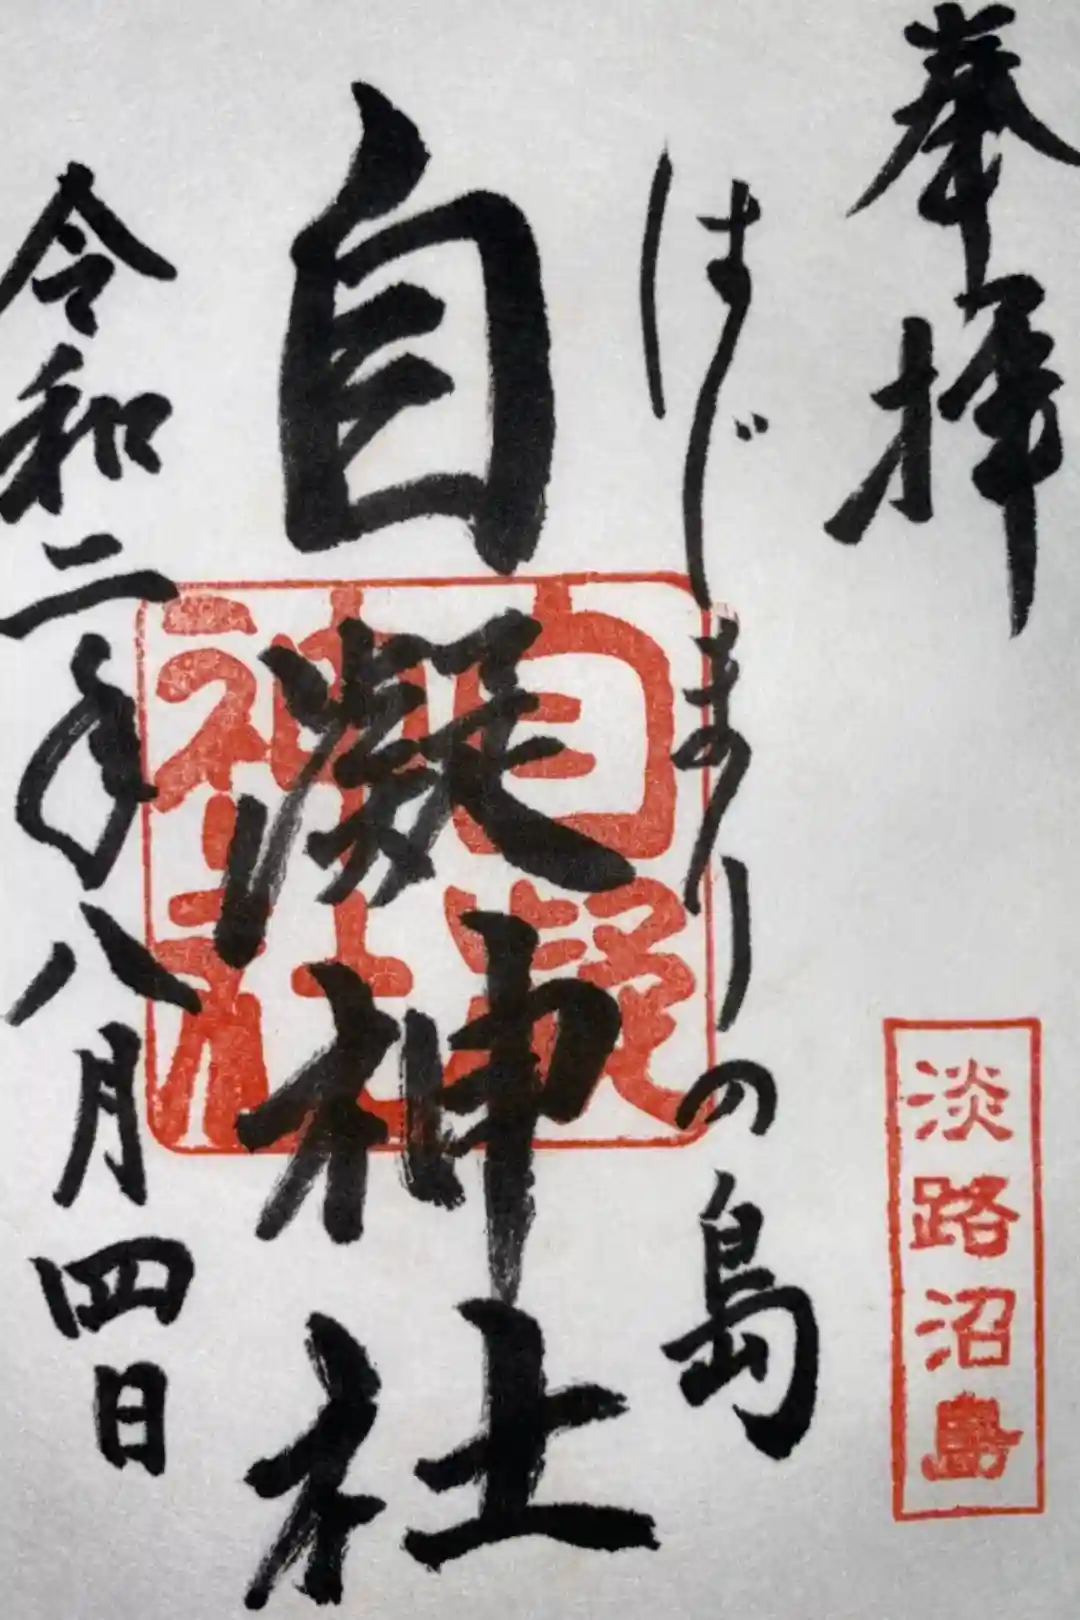 奉拝
はじまりの島
自凝神社
令和二年八月四日
自凝
神社
淡路沼島